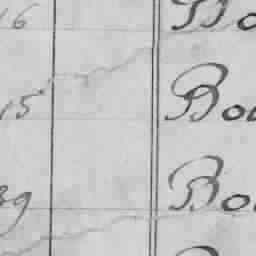 16 Bo
15 Bou
39 Bo